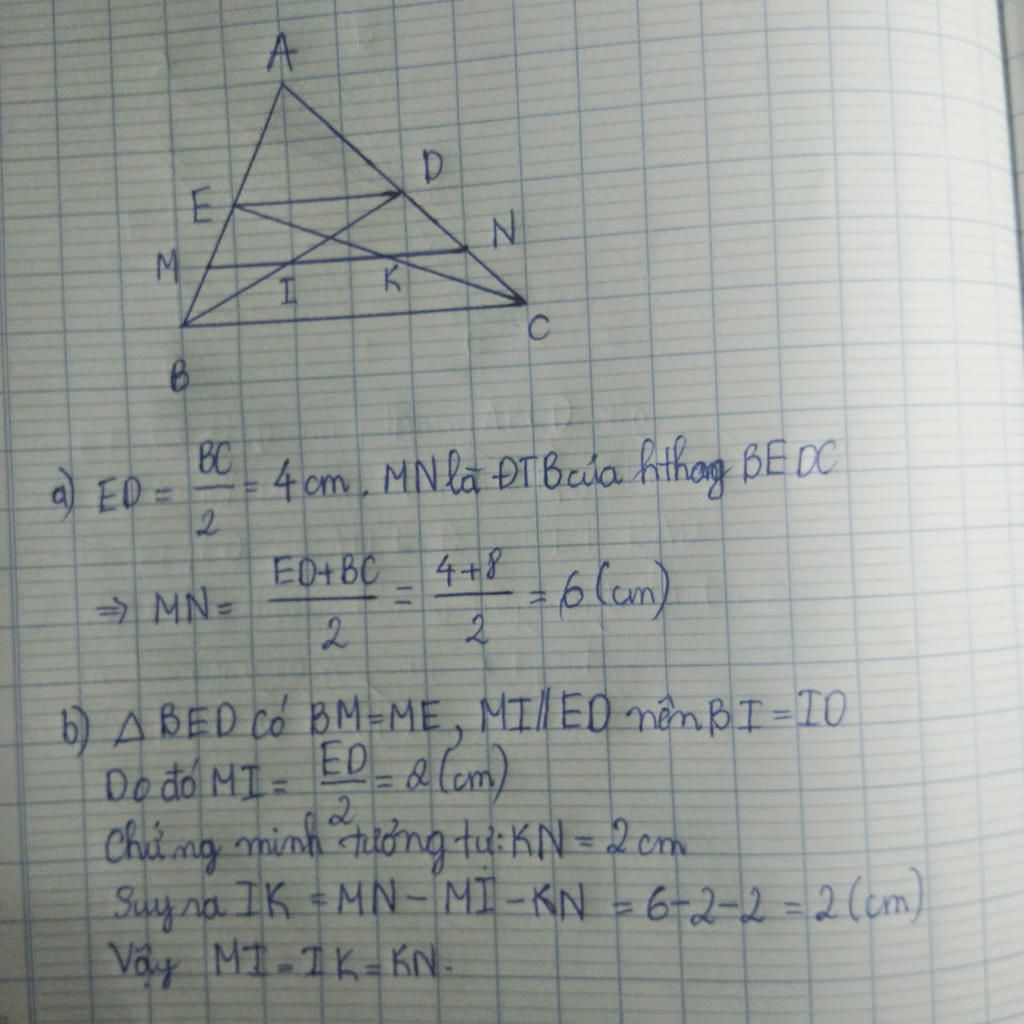 A
D
E
N
M
I
K
C
B
a) ED = BC/2 = 4cm. MN là ĐTB của hthag BEDC
⇒ MN = ED+BC/2 = 4+8/2 = 6 (cm)
b) Δ BED có BM=ME, MI//ED nên BI = ID
Do đó MI = ED/2 = 2 (cm)
Chứng minh tương tự: KN = 2cm
Suy ra IK = MN - MI - KN = 6-2-2 = 2 (cm)
Vậy MI = IK = KN.